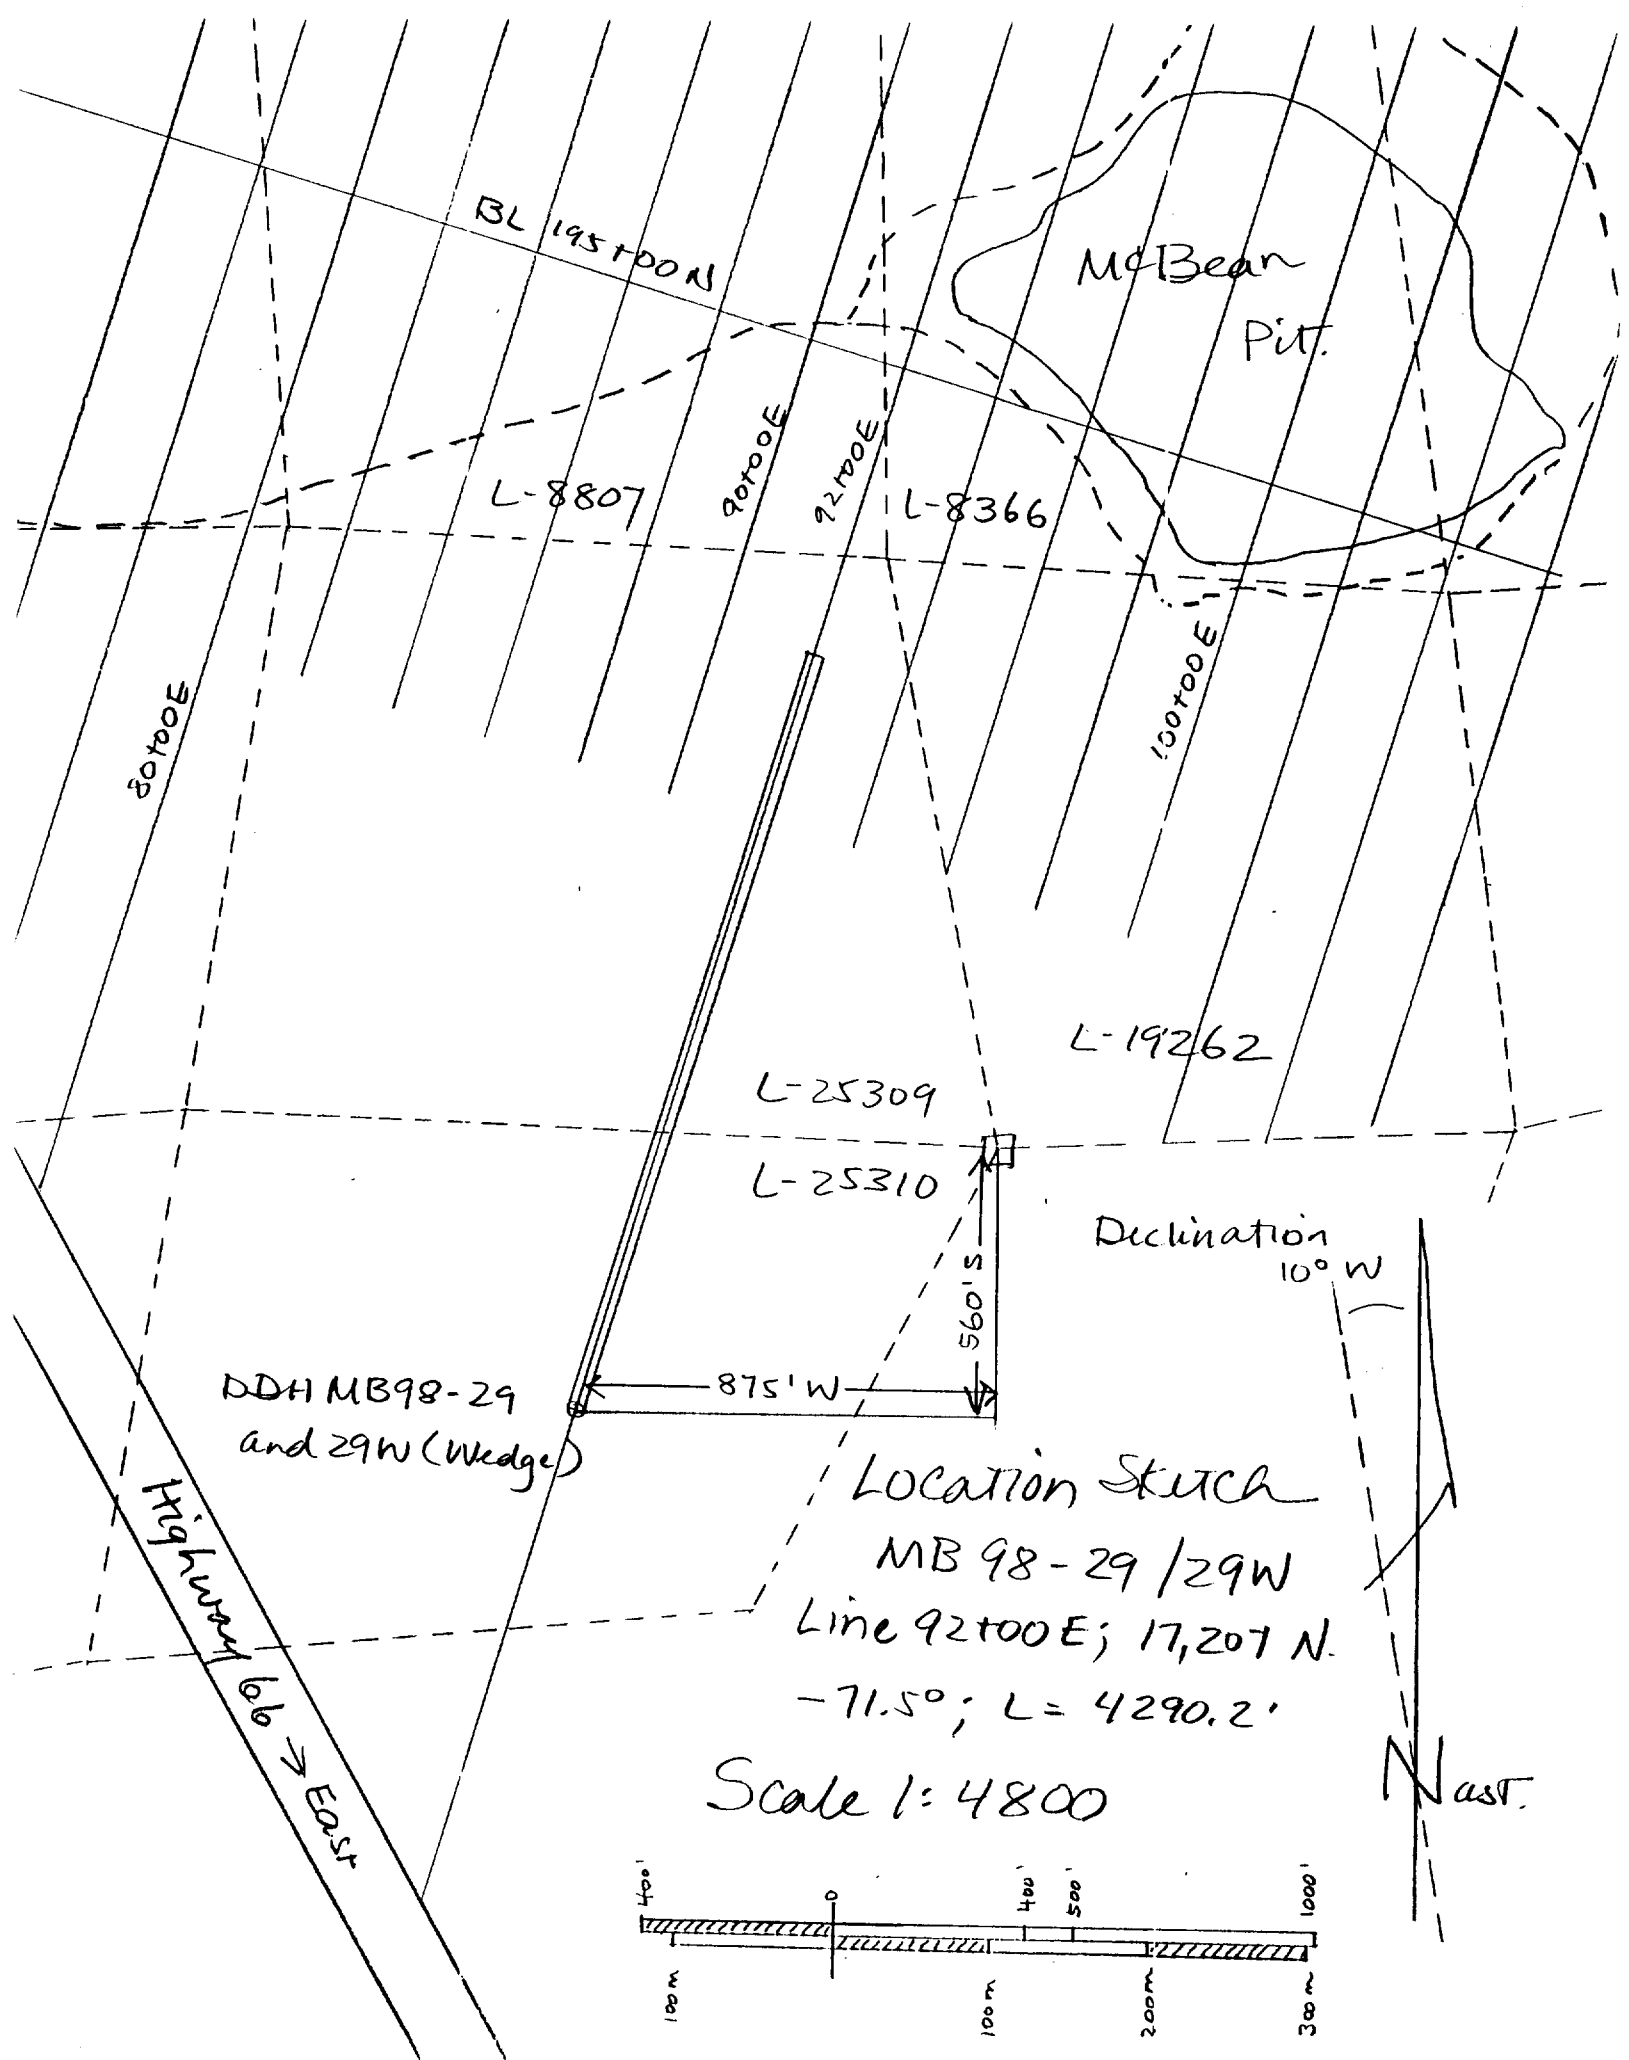 BL 195+00N
McBean
Pit.
90+00E
92+00E
L-8807
L-8366
80+00E
100+00E
L-19262
L-25309
L-25310
560'S
Declination
10° W
875'W
DDH MB98-29
and 29W (Wedge)
Highway 66 → East
Location Sketch
MB 98-29/29W
Line 92+00E; 17,207 N.
-71.5°; L= 4290.2'
Scale 1:4800
N ast.
400' 0 400' 500' 1000'
100m 100m 200m 300m